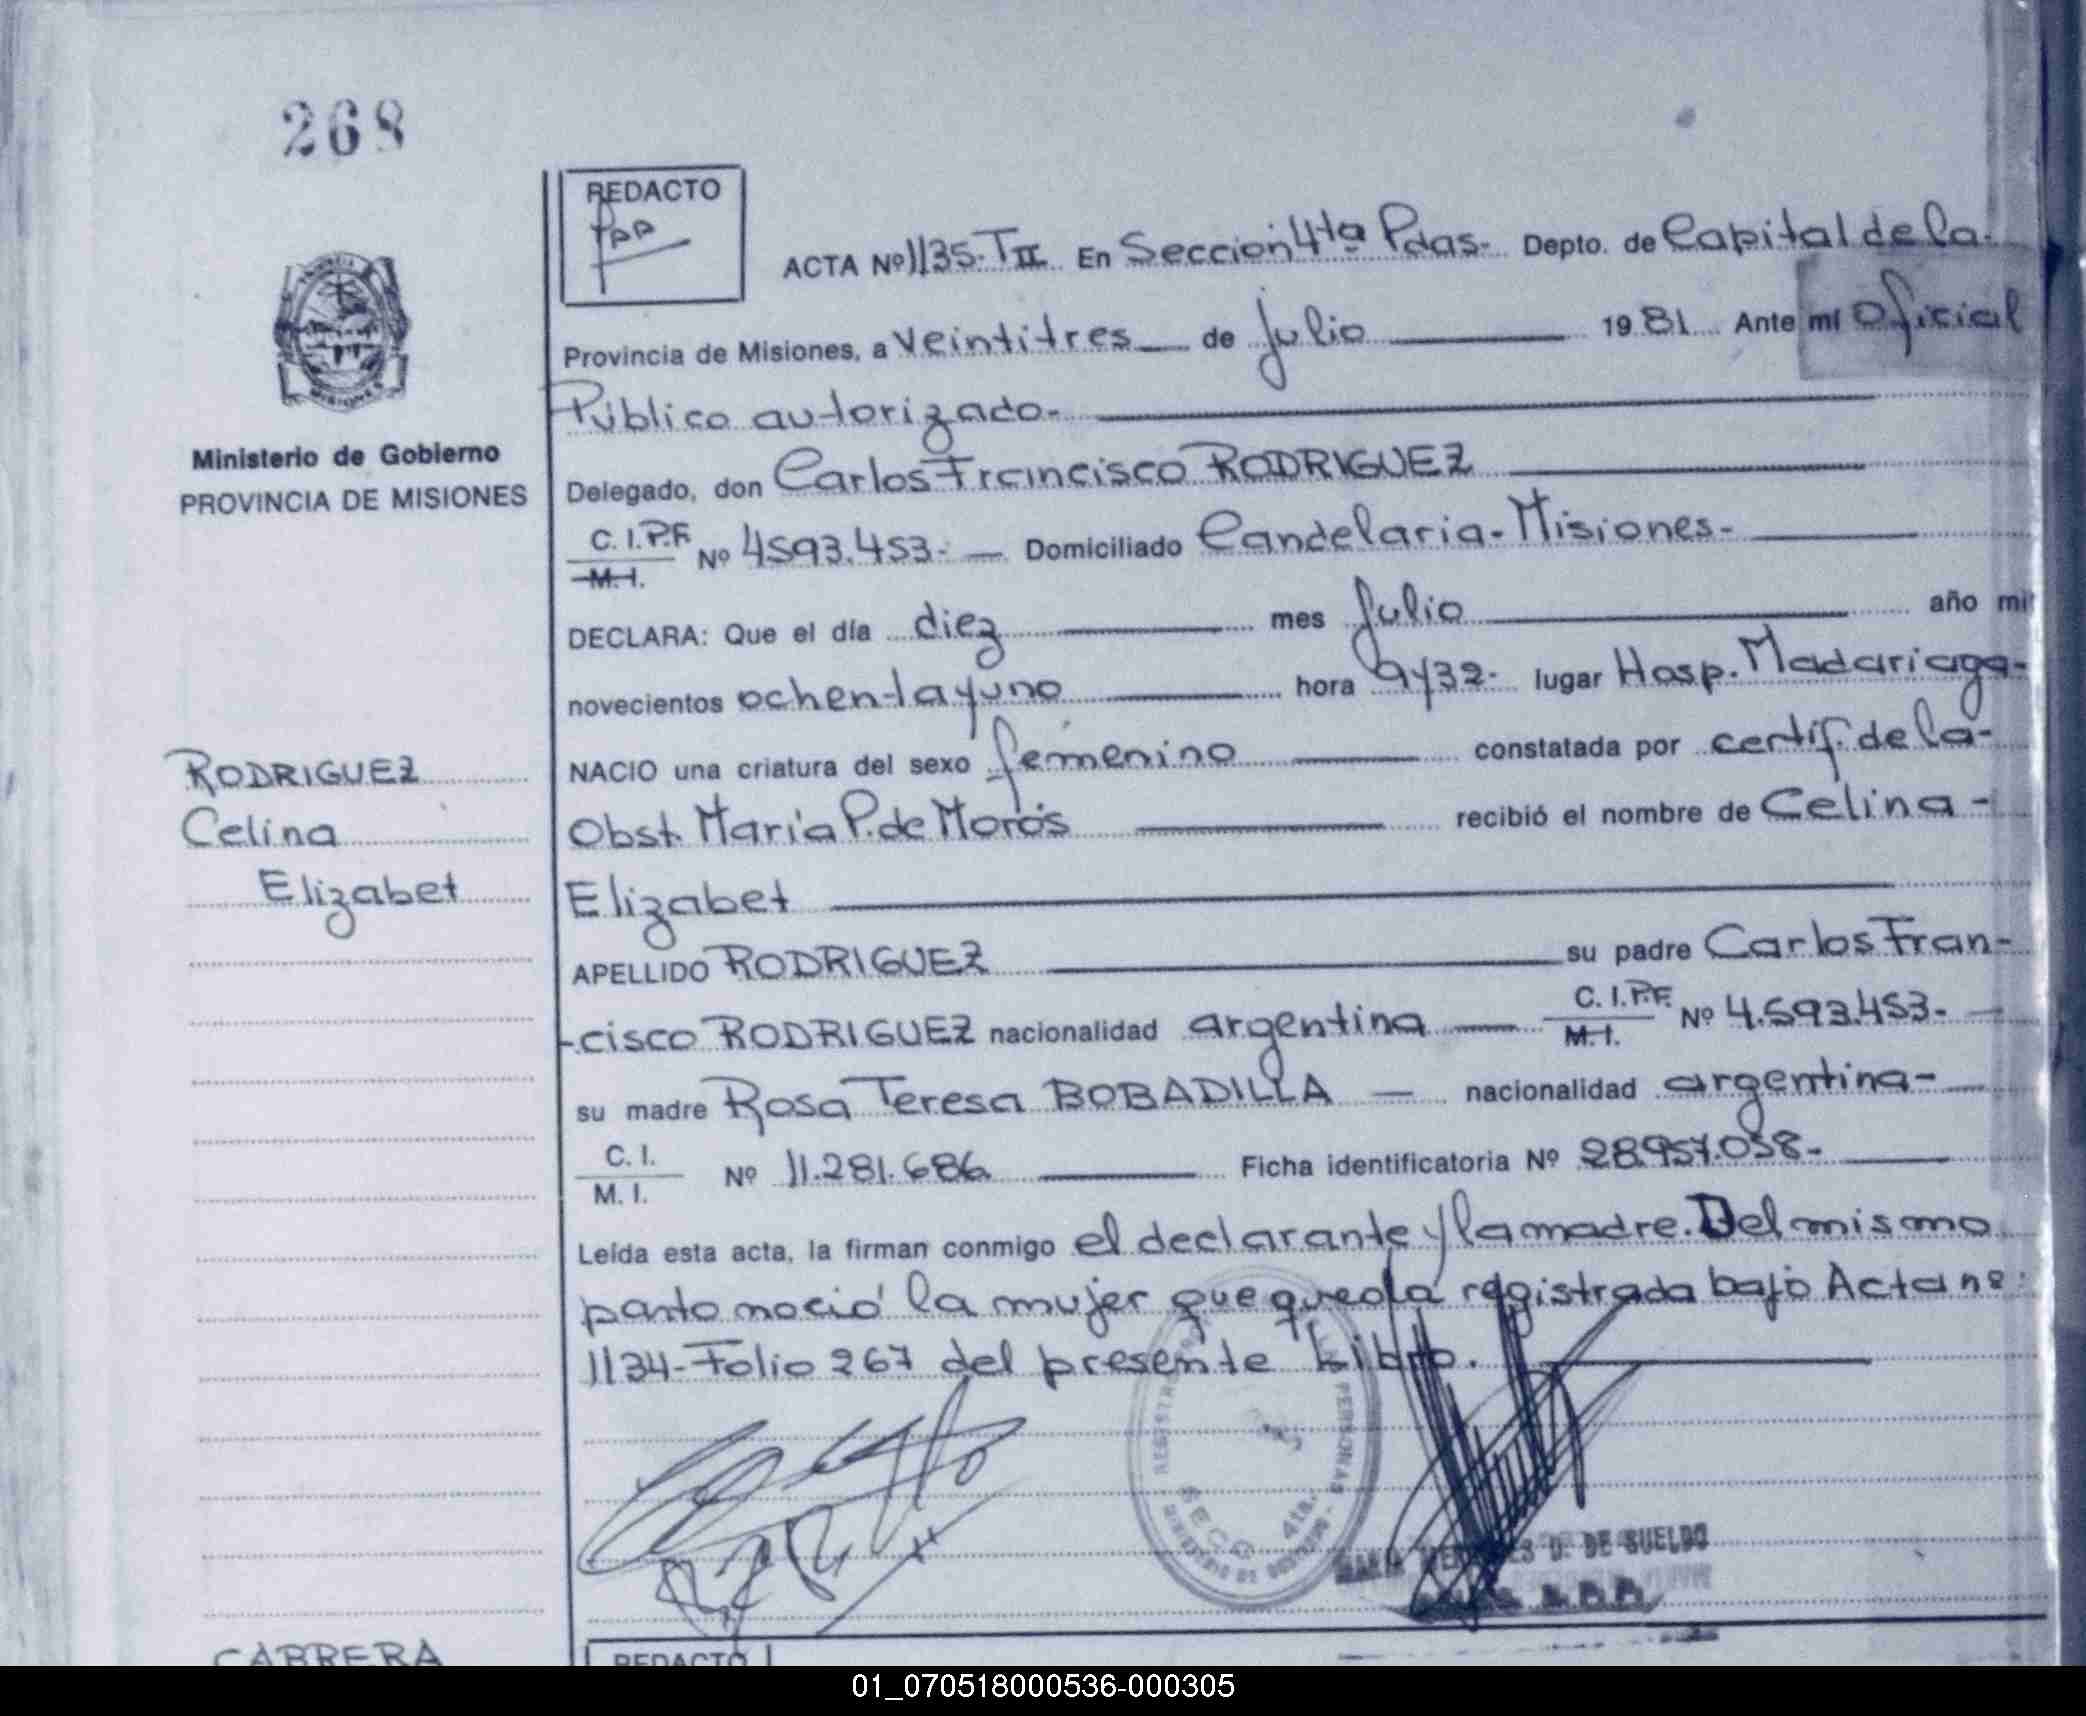 268
REDACTO
ACTA Nº 1135-TII En Sección 4ta Pdas- Depto. de Capital de la-
Provincia de Misiones, a veintitres de julio 1981 Ante mí Oficial
Público autorizado-
Ministerio de Gobierno
PROVINCIA DE MISIONES
Delegado, don Carlos Francisco RODRIGUEZ
C.I.P.F. Nº 4593.453- Domiciliado Candelaria-Misiones-
M.I.
DECLARA: Que el día diez mes julio año mil
novecientos ochentayuno hora 9y32- lugar Hosp. Madariaga-
RODRIGUEZ
Celina
Elizabet
NACIO una criatura del sexo femenino constatada por certif. de la-
Obst. María P. de Morós recibió el nombre de Celina-
Elizabet
APELLIDO RODRIGUEZ su padre Carlos Fran-
-cisco RODRIGUEZ nacionalidad argentina C.I.P.F. Nº 4.593.453-
M.I.
su madre Rosa Teresa BOBADILLA - nacionalidad argentina-
C.I.
M.I. Nº 11.281.686 Ficha identificatoria Nº 28.957.038-
Leída esta acta, la firman conmigo el declarante y la madre. Del mismo
parto nació la mujer que queda registrada bajo Acta nº:
1134-Folio 267 del presente Libro.
PERSONAS
SECC. 4ta.
D. DE SUELDO
CABRERA
REDACTO
01_070518000536-000305